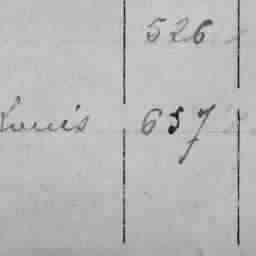 526
Louis 657